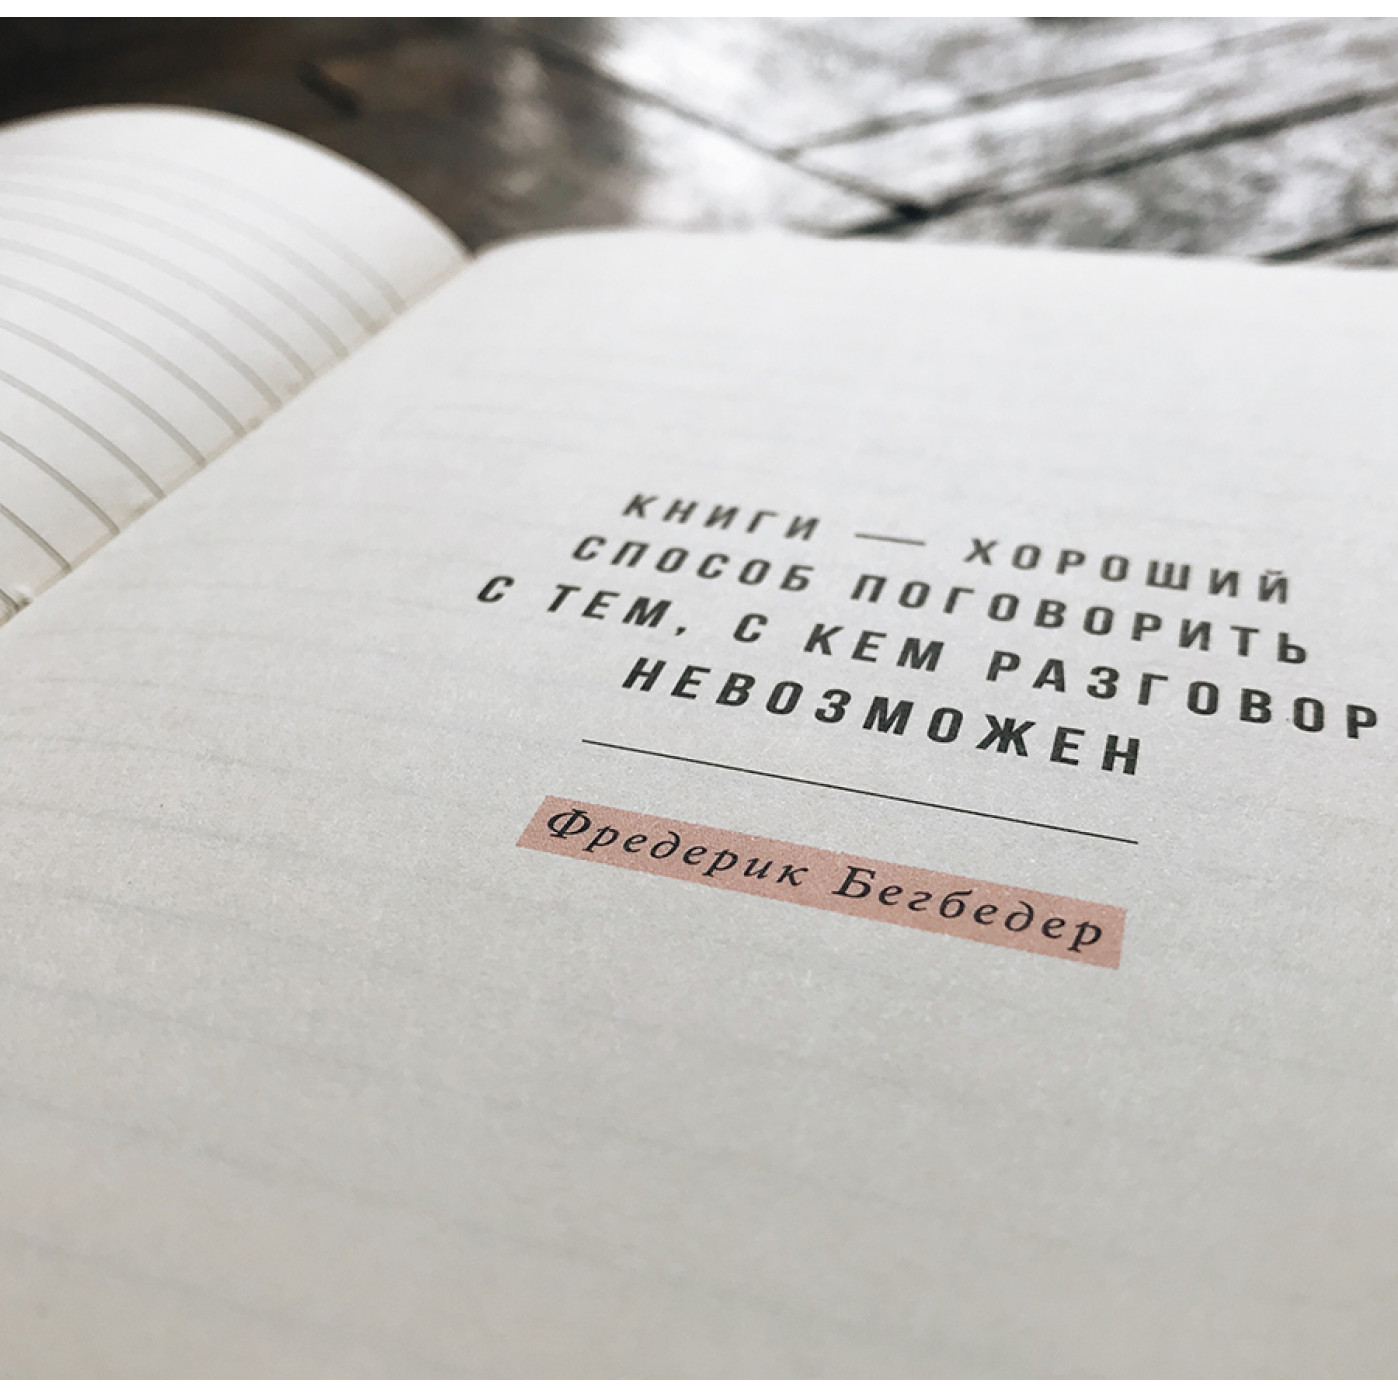 КНИГИ — ХОРОШИЙ
СПОСОБ ПОГОВОРИТЬ
С ТЕМ, С КЕМ РАЗГОВОР
НЕВОЗМОЖЕН
Фредерик Бегбедер